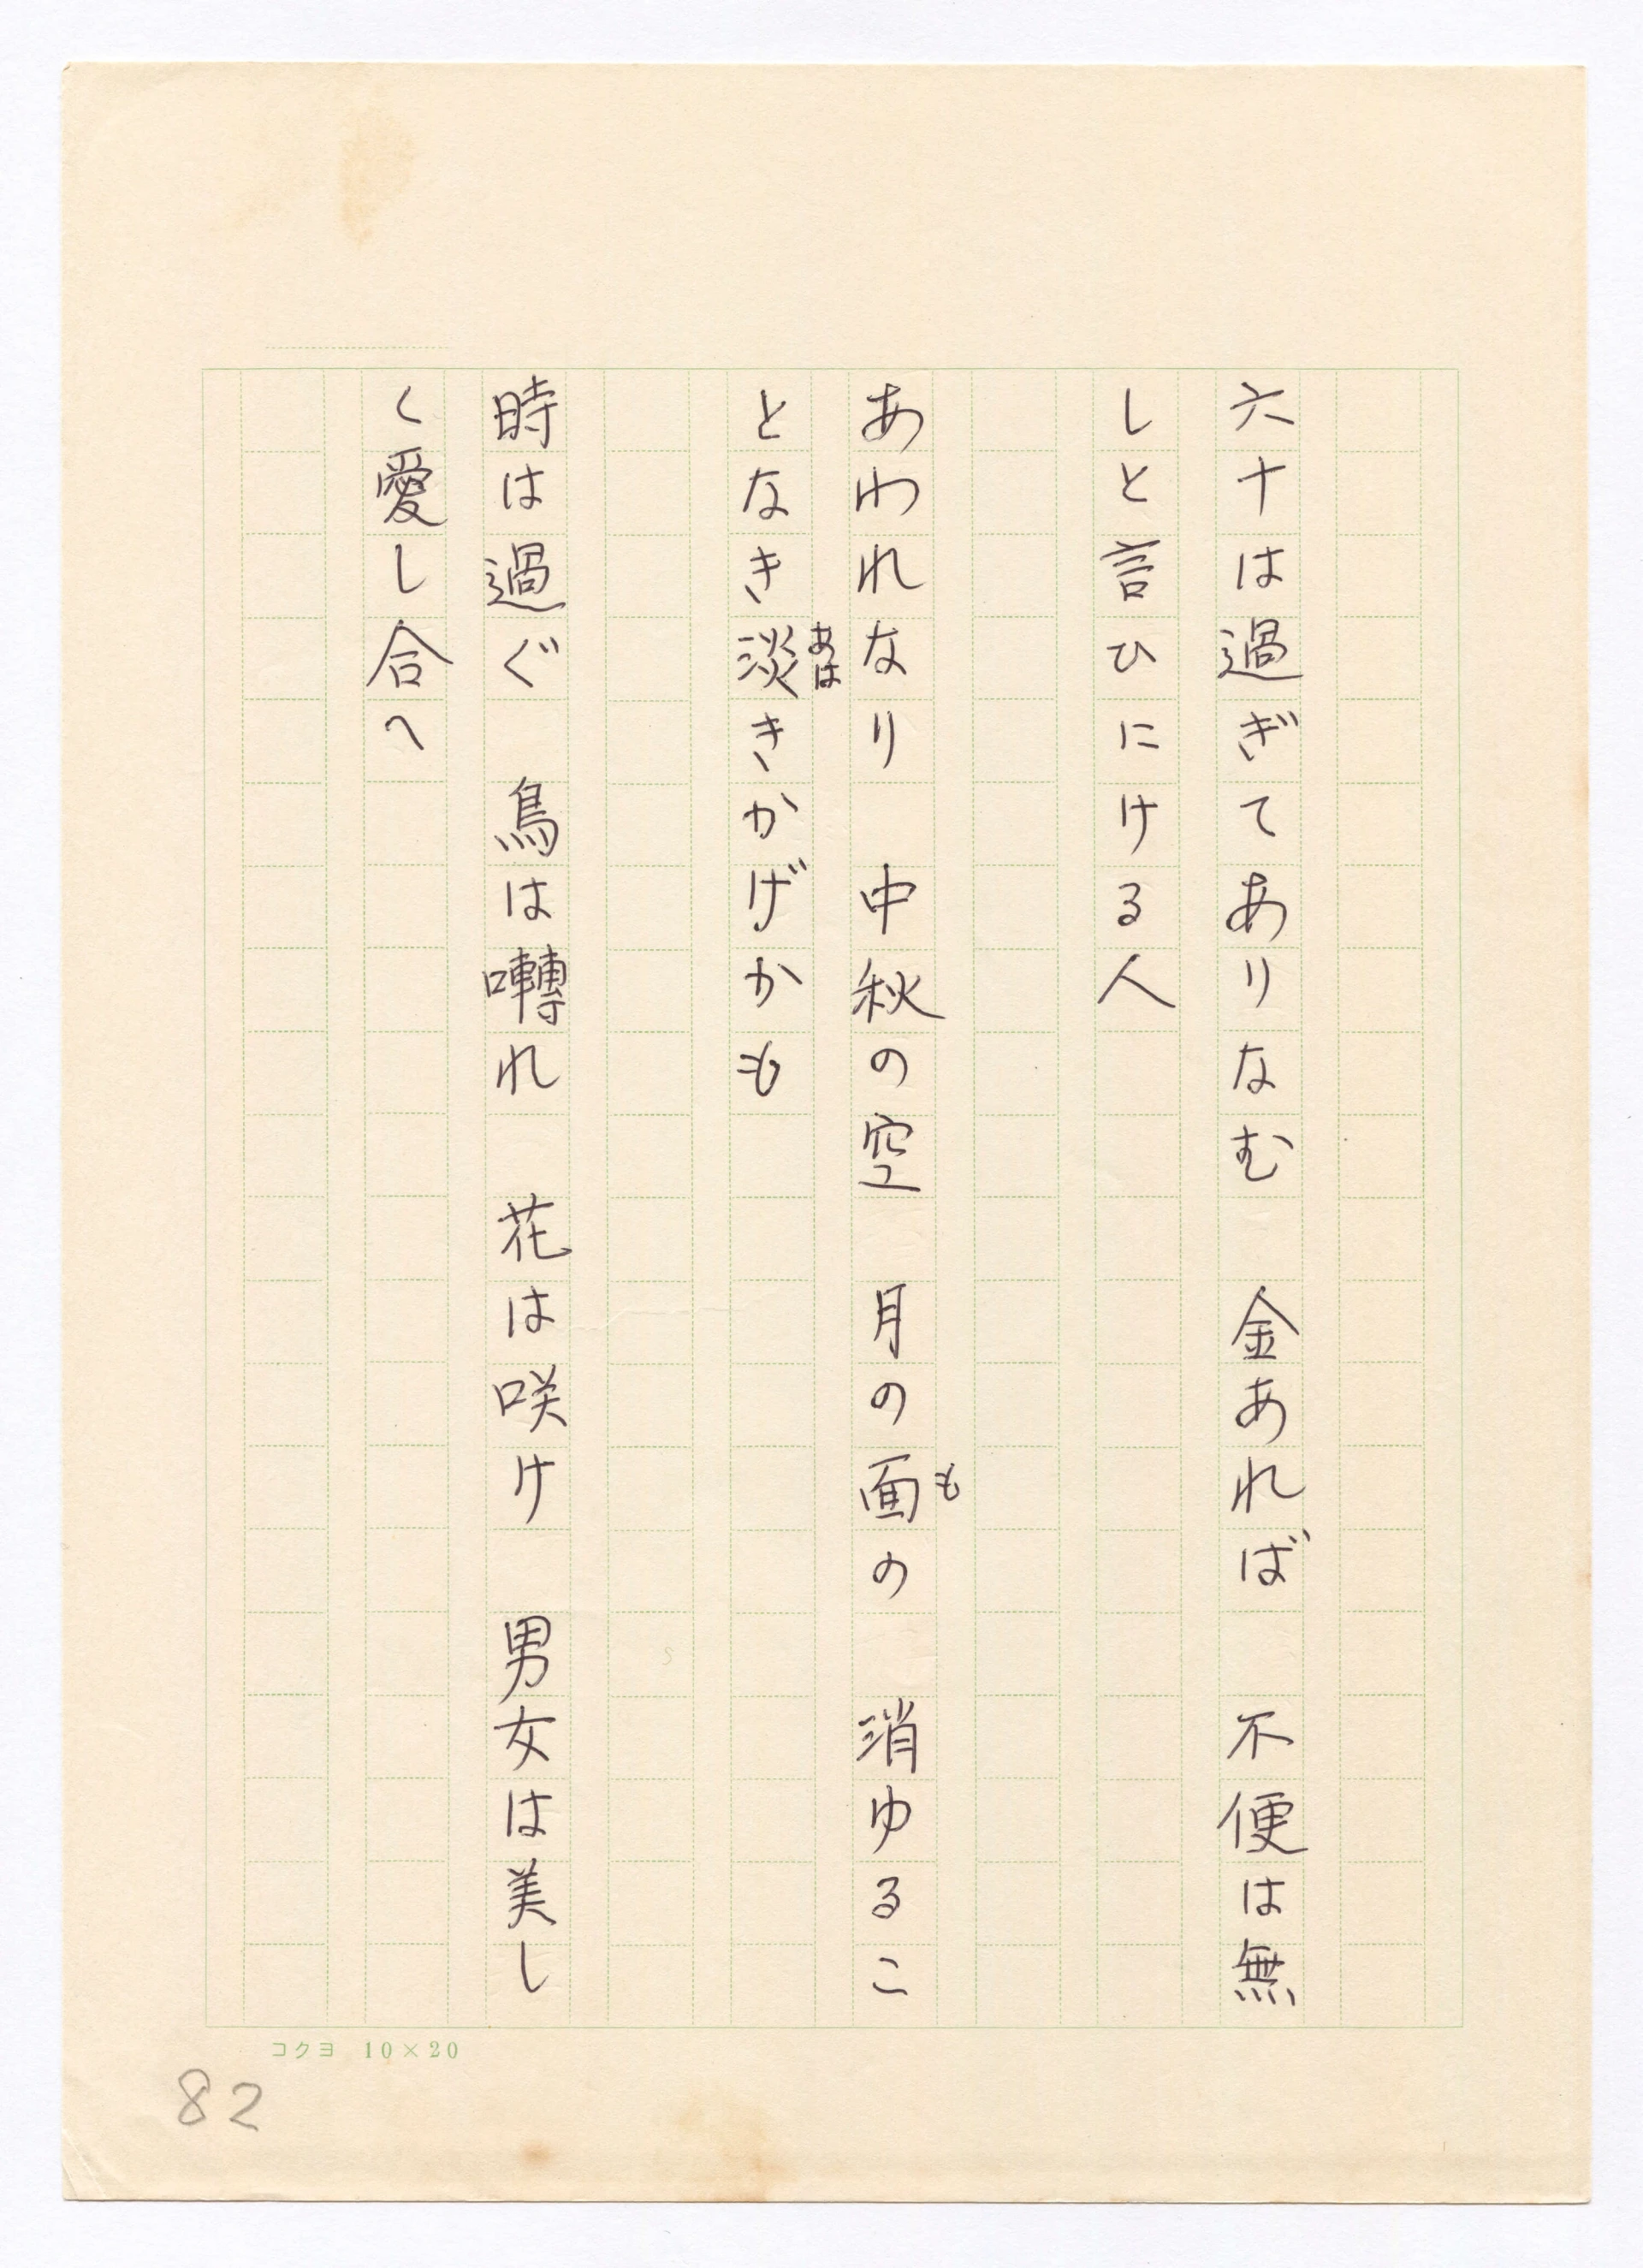 六十は過ぎてありなむ　金あれば　不便は無
しと言ひにける人
あわれなり　中秋の空　月の面の　消ゆるこ
も
となき淡きかげかも
あは
時は過ぐ　鳥は囀れ　花は咲け　男女は美し
く愛し合へ
コクヨ 10×20
82